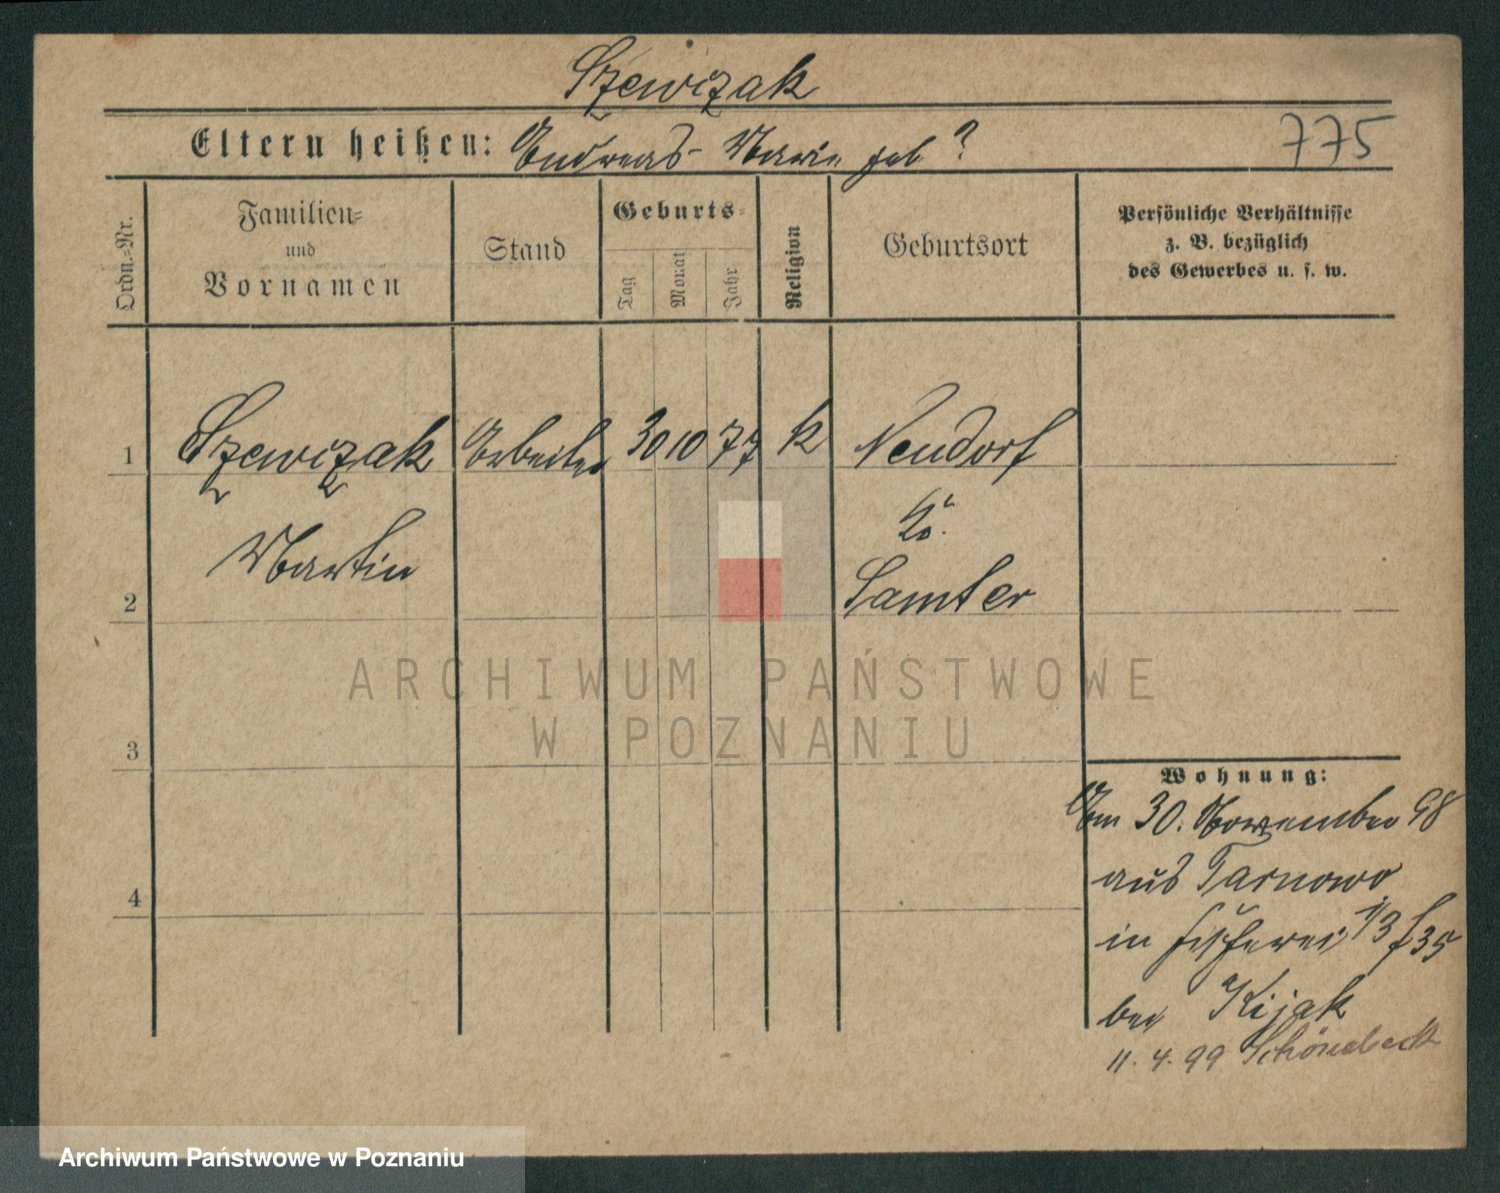 Szewizak
Eltern heißen: Andreas - Marie geb ?
775
Ordn.-Nr.
Familien=
und
Vornamen
Stand
Geburts=
Tag
Monat
Jahr
Religion
Geburtsort
Persönliche Verhältnisse
z. B. bezüglich
des Gewerbes u. s. w.
1 Szewizak Arbeiter 30 10 77 k Neudorf
Kr.
Martin
2 Samter
ARCHIWUM PAŃSTWOWE
W POZNANIU
3
Wohnung:
Am 30. November 98
4 aus Tarnowo
in Fischerei 1/3 f 35
bei Kijak
11. 4. 99 Schönebeck
Archiwum Państwowe w Poznaniu